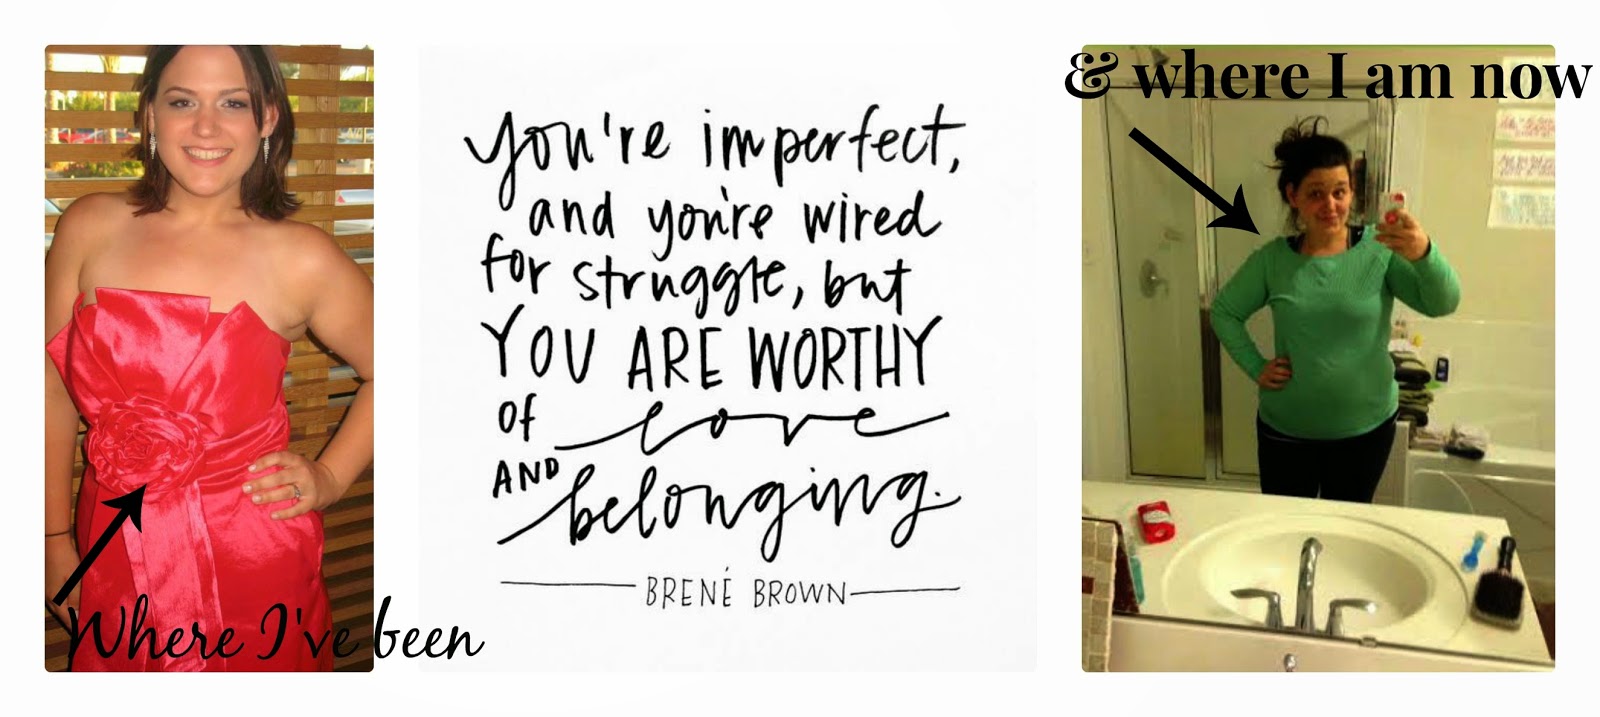 Where I've been
you're imperfect,
and you're wired
for struggle, but
YOU ARE WORTHY
of love
AND belonging.
BRENÉ BROWN
& where I am now